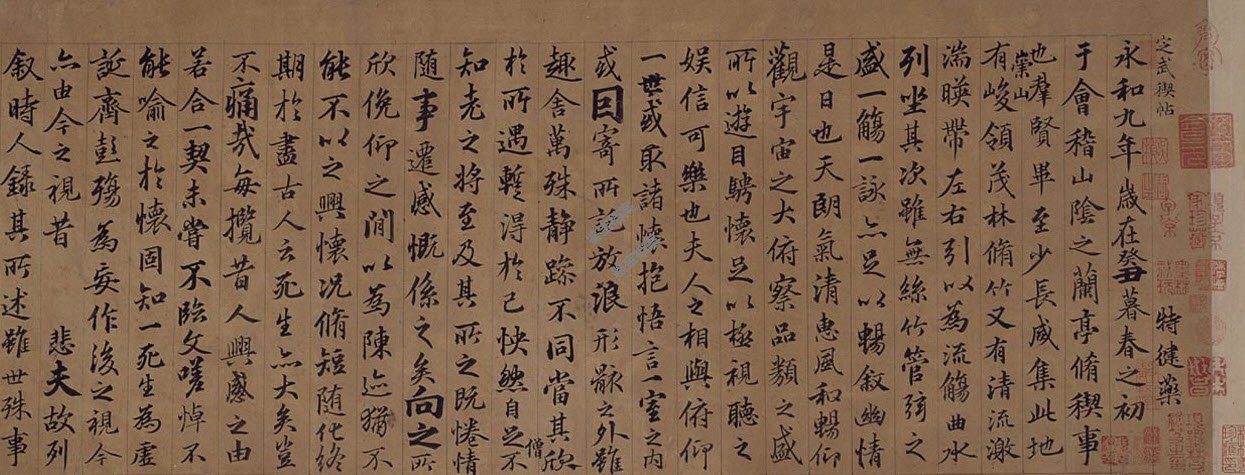 定武禊帖
特健藥
永和九年歲在癸丑暮春之初
于會稽山陰之蘭亭脩稧事
也羣賢畢至少長咸集此地
崇山
有峻領茂林脩竹又有清流激
湍暎帶左右引以為流觴曲水
列坐其次雖無絲竹管弦之
盛一觴一詠亦足以暢叙幽情
是日也天朗氣清惠風和暢仰
觀宇宙之大俯察品類之盛
所以遊目騁懷足以極視聽之
娛信可樂也夫人之相與俯仰
一世或取諸懷抱悟言一室之內
或因寄所託放浪形骸之外雖
趣舍萬殊静躁不同當其欣
於所遇暫得於己怏然自足不
僧
知老之將至及其所之既惓情
隨事遷感慨係之矣向之所
欣俛仰之閒以為陳迹猶不
能不以之興懷況脩短隨化終
期於盡古人云死生亦大矣豈
不痛哉每攬昔人興感之由
若合一契未嘗不臨文嗟悼不
能喻之於懷固知一死生為虛
誕齊彭殤為妄作後之視今
亦由今之視昔 悲夫故列
叙時人錄其所述雖世殊事